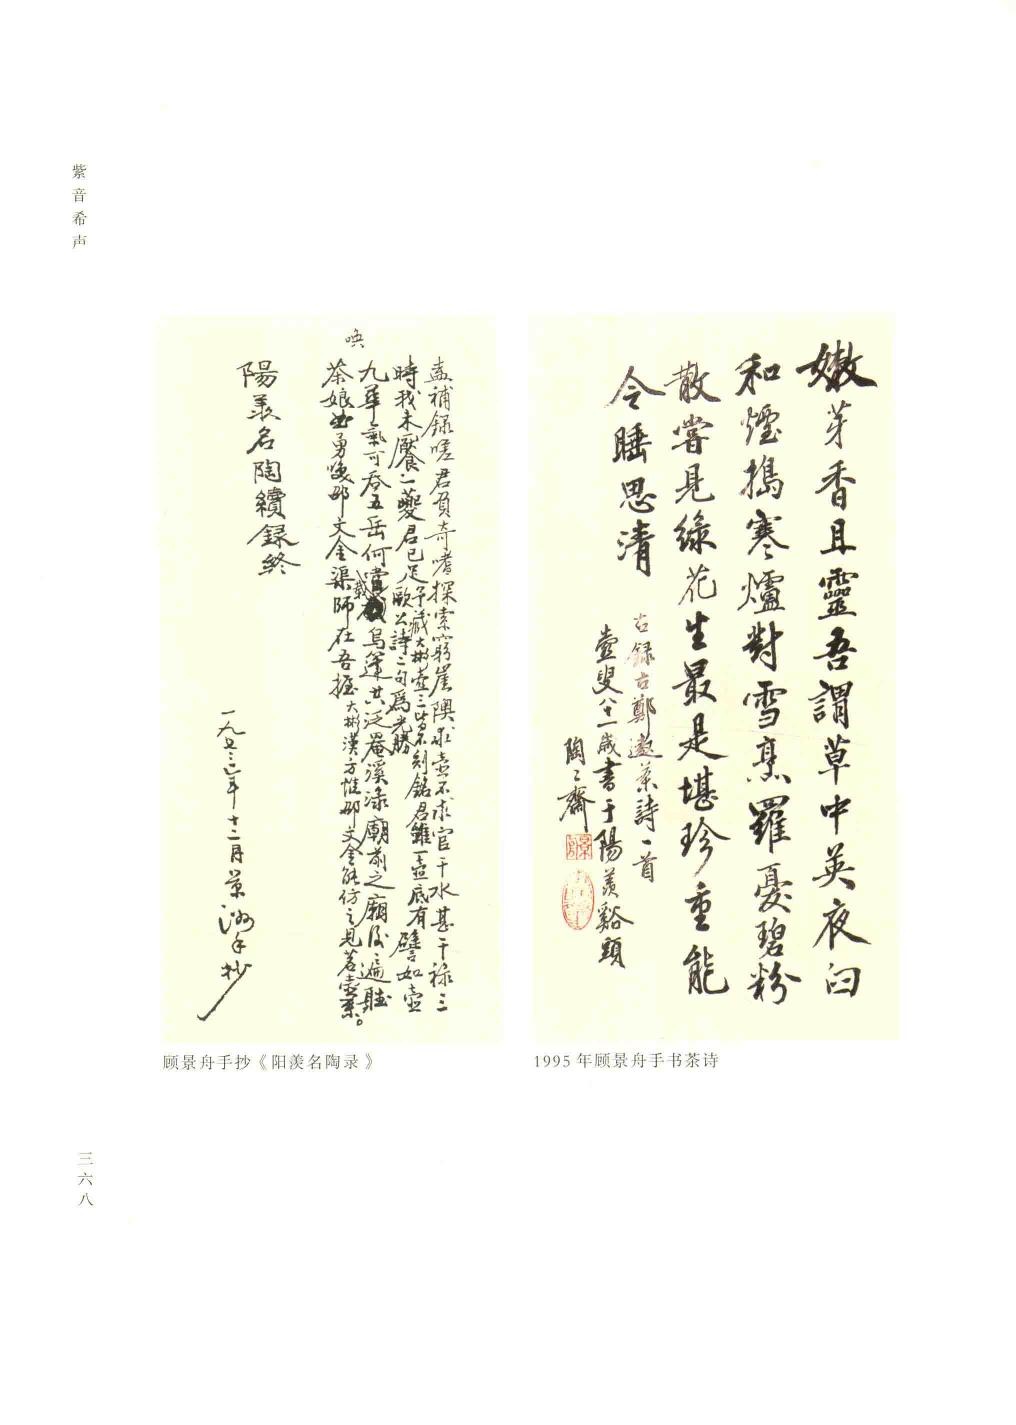 紫音希声
嫩芽香且靈吾謂草中英夜臼
和煙搗寒爐對雪烹羅憂碧粉
散嘗見綠花生最是堪珍重能
令睡思清
右録古鄭遨茶詩一首
壺叟八十一歲書于陽羨谿頭
陶〻齋
盉補録嗟君負奇嗜探索窮崖隩求壺不求官干水甚干禄三
時我未饜一夔君已足予藏大彬壺三皆不刻銘君雖一壺底有
歐公詩二句爲尤勝
譬如壺
九華氣可吞五岳何嘗載烏篷共泛罨溪渌廟前之廟後遍聽
茶娘曲勇喚邵文金渠師在吾握大彬漢方惟邵文金能仿之見茗壺系。
喚
陽羨名陶續録終
一九七三年十二月景洲手抄
顾景舟手抄《阳羡名陶录》
1995年顾景舟手书茶诗
三六八